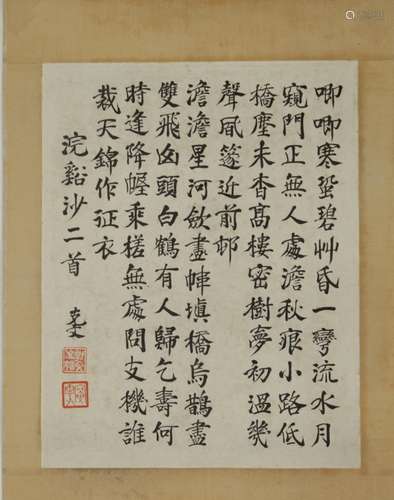 唧唧寒蛩碧艸昏一彎流水月
窺門正無人處澹秋痕小路低
橋塵未杳高樓密樹夢初過幾
聲風篴近前邨
澹澹星河斂畫幃填橋烏鵲盡
雙飛頭白鶴有人歸乞壽何
時逢降幄乘槎無處問支機誰
裁天錦作征衣
浣谿沙二首